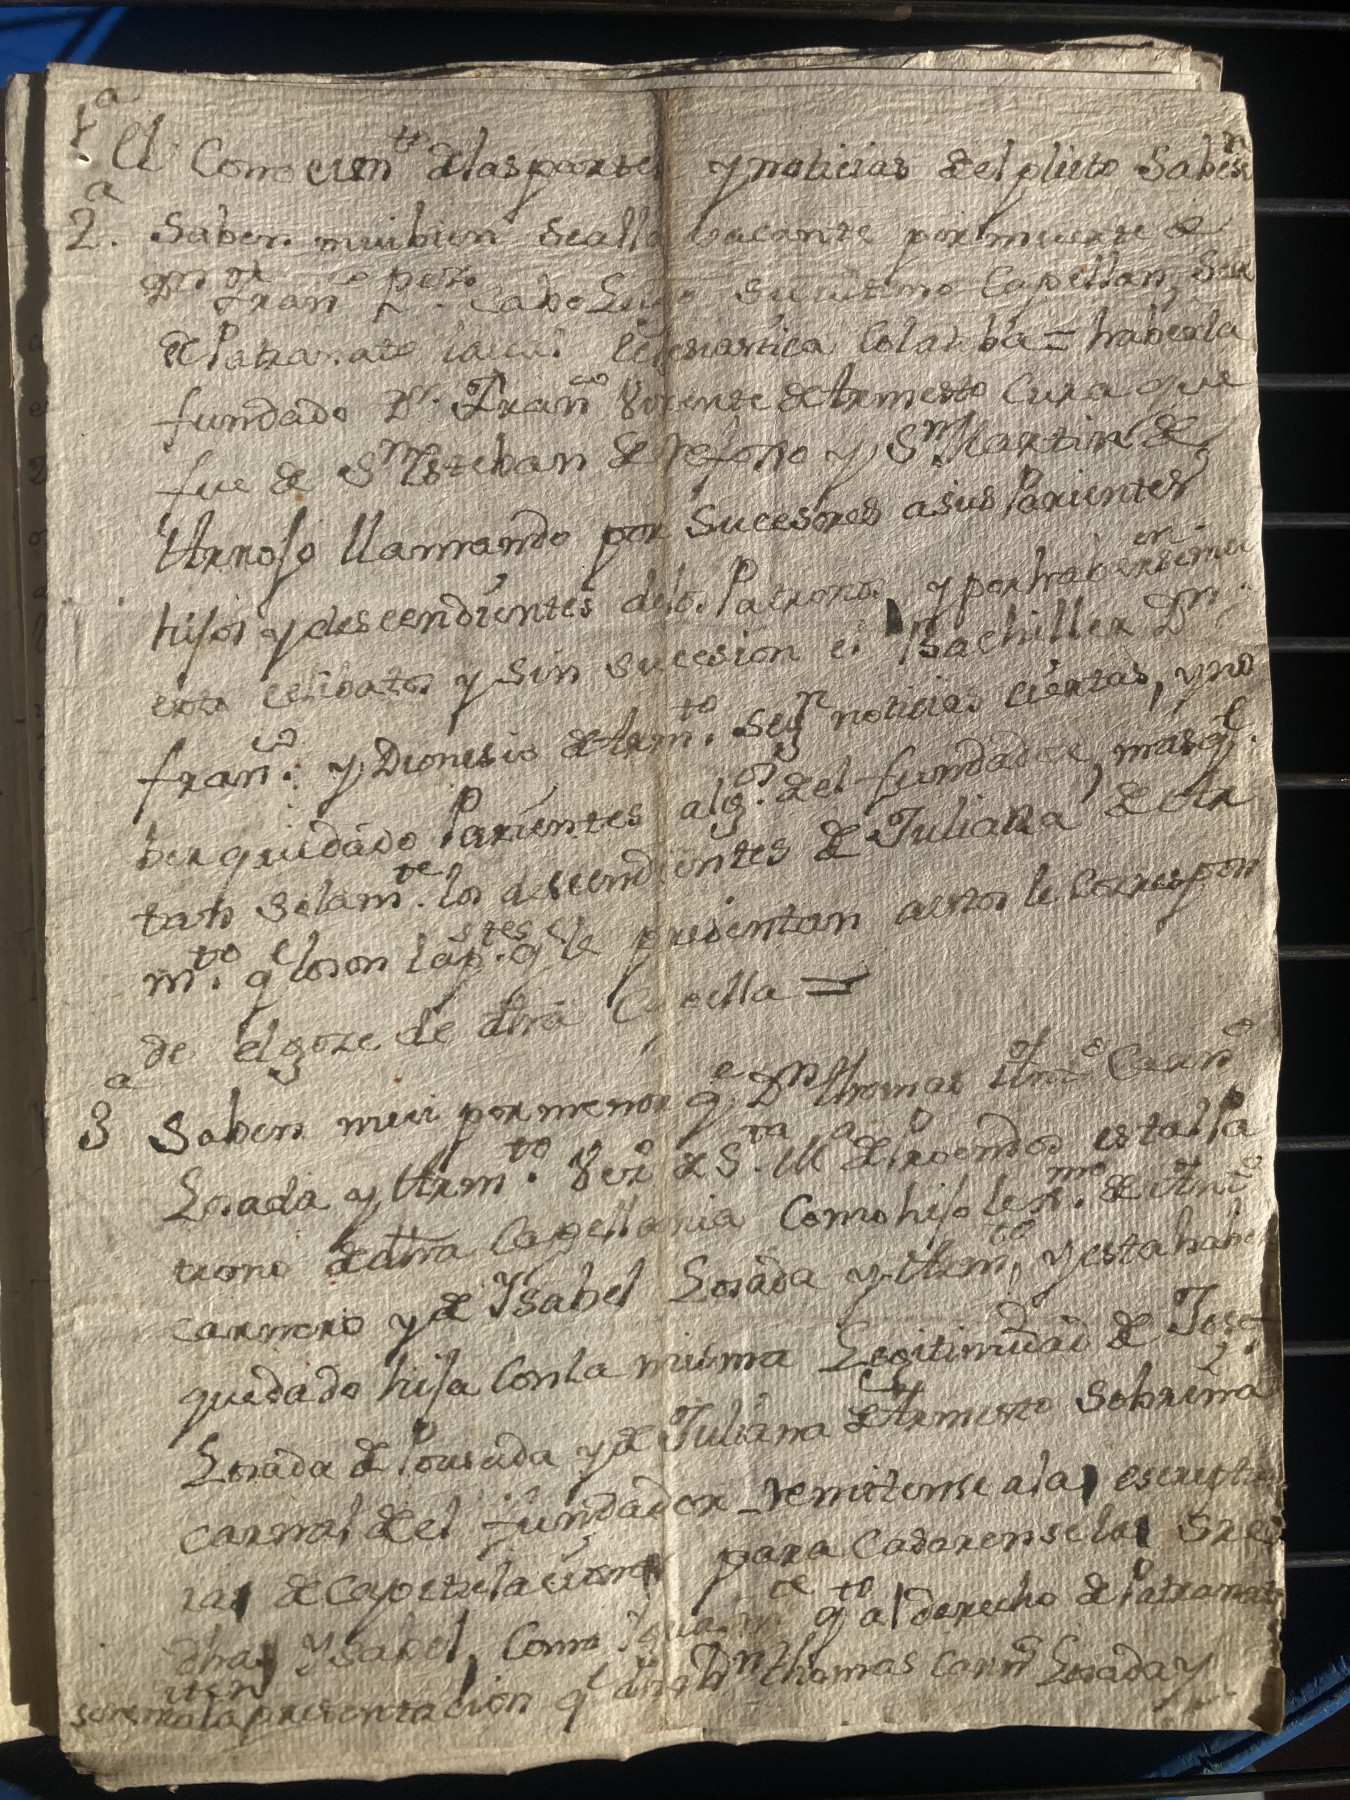 1.ª El Conocim.to de las partes y noticias del pleito Saben
2.ª Saben mui bien se alla vacante por muerte de
D.n Fran.co Lugo su ultimo Capellan, ser
de Patronato Ecclesiastica Colatiba = haberla
fundado D.n Fran.co Vizente de Armesto Cura que
fue de S.n Esteban de y S.n Martin de
Arrojo llamando por Sucesores a sus Parientes
hijos y descendientes de los Patronos, y por haberse mu
erto celibatos y sin sucesion el Bachiller D.n
fran.co y Dionisio de Arm.to seg.n noticias ciertas, y no
ber quedado Parientes alg.os del fundador, mas q.e
tan solam.te los descendientes de Juliana de Ar
m.to q.e lo son las p.tes q.e le presentan a estos le correspon
de el goze de dha Capella =
3.ª Saben mui por menor q.e D.n Thomas Ant.o Carn.o
Losada y Arm.to Vez.o de S.ta M.a de es tal Pa
trono de dha Capellania Como hijo lex.mo de Ant.o
carnero y de Ysabel Losada y Arm.to, y esta haber
quedado hija con la misma Legitimidad de Jose
Losada de Pousada y de Juliana de Armesto Sobrina
carnal de el fundador remitense a las escriptu
ras de Capitulaciones para Casarense las
dhas Ysabel, Como igualm.te q.to al derecho de Patronato
se remiten a la presentacion q.e dho D.n Thomas Carn.o Losada y